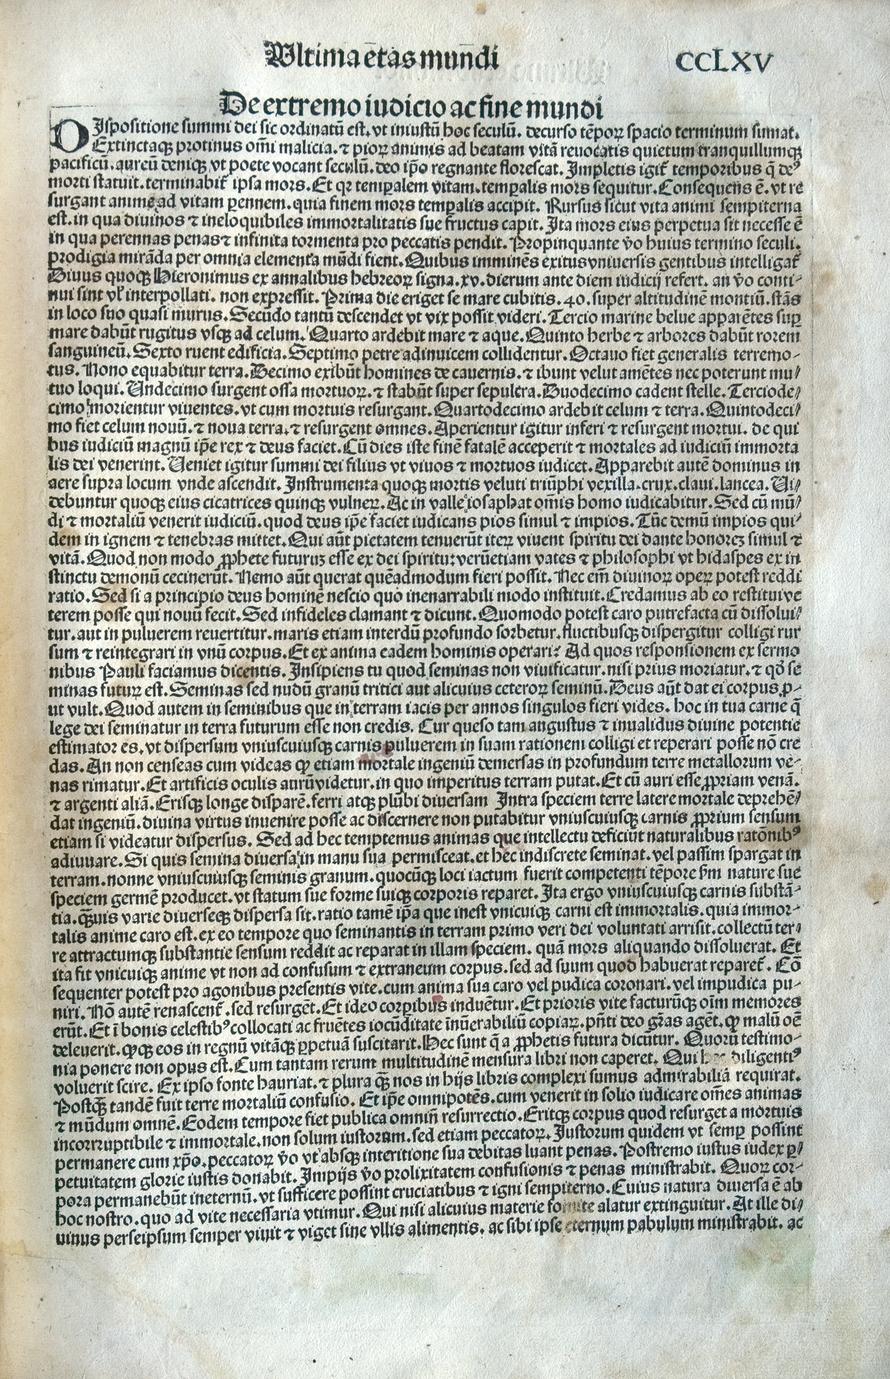 Ultima etas mundi CCLXV
De extremo iudicio ac fine mundi
DIspositione summi dei sic ordinatũ est. vt iniustũ hoc seculũ. decurso tẽpoꝝ spacio terminum sumat.
Extinctaqꝫ protinus om̃i malicia. ⁊ pioꝝ animis ad beatam vitã reuocatis quietum tranquillumqꝫ
pacificũ. aureũ deniqꝫ vt poete vocant seculũ. deo ip̃o regnante florescat. Impletis igit᷑ temporibus q̃ deꝰ
morti statuit. terminabit᷑ ipsa mors. Et qꝛ temꝑalem vitam. temꝑalis mors sequitur. Consequens ẽ. vt re
surgant anime ad vitam ꝑennem. quia finem mors temꝑalis accipit. Rursus sicut vita animi sempiterna
est. in qua diuinos ⁊ ineloquibiles immortalitatis sue fructus capit. Ita mors eius perpetua sit necesse ẽ
in qua perennas penas ⁊ infinita tormenta pro peccatis pendit. Propinquante ṽo huius termino seculi.
prodigia mirãda per omnia elementa mũdi fient. Quibus imminẽs exitus vniuersis gentibus intelligat᷑
Diuus quoqꝫ Hieronimus ex annalibus hebreoꝝ signa. xv. dierum ante diem iudicij refert. an ṽo conti-
nui sint vl᷑ interpollati. non expressit. Prima die eriget se mare cubitis. 40. super altitudinẽ montiũ. stãs
in loco suo quasi murus. Secũdo tantũ descendet vt vix possit videri. Tercio marine belue apparẽtes suꝑ
mare dabũt rugitus vsqꝫ ad celum. Quarto ardebit mare ⁊ aque. Quinto herbe ⁊ arbores dabũt rorem
sanguineũ. Sexto ruent edificia. Septimo petre adinuicem collidentur. Octauo fiet generalis terremo-
tus. Nono equabitur terra. Decimo exibũt homines de cauernis. ⁊ ibunt velut amẽtes nec poterunt mu/
tuo loqui. Undecimo surgent ossa mortuoꝝ. ⁊ stabũt super sepulcra. Duodecimo cadent stelle. Terciode/
cimo morientur viuentes. vt cum mortuis resurgant. Quartodecimo ardebit celum ⁊ terra. Quintodeci/
mo fiet celum nouũ. ⁊ noua terra. ⁊ resurgent omnes. Aperientur igitur inferi ⁊ resurgent mortui. de qui
bus iudiciũ magnũ ip̃e rex ⁊ deus faciet. Cũ dies iste finẽ fatalẽ acceperit ⁊ mortales ad iudiciũ immorta
lis dei venerint. Veniet igitur summi dei filius vt viuos ⁊ mortuos iudicet. Apparebit autẽ dominus in
aere supra locum vnde ascendit. Instrumenta quoqꝫ mortis veluti triũphi vexilla. crux. claui. lancea. Vi/
debuntur quoqꝫ eius cicatrices quinqꝫ vulneꝝ. Ac in valle iosaphat om̃is homo iudicabitur. Sed cũ mũ/
di ⁊ mortaliũ venerit iudiciũ. quod deus ip̃e faciet iudicans pios simul ⁊ impios. Tũc demũ impios qui/
dem in ignem ⁊ tenebras mittet. Qui aũt pietatem tenuerũt iteꝝ viuent spiritu dei dante honorẽ simul ⁊
vitã. Quod non modo ꝓphete futurũ esse ex dei spiritu: verũetiam vates ⁊ philosophi vt hidaspes ex in
stinctu demonũ cecinerũt. Nemo aũt querat quẽadmodum fieri possit. Nec em̃ diuinoꝝ opeꝝ potest reddi
ratio. Sed si a principio deus hominẽ nescio quo inenarrabili modo instituit. Credamus ab eo restitui ve
terem posse qui nouũ fecit. Sed infideles clamant ⁊ dicunt. Quomodo potest caro putrefacta cũ dissolui/
tur. aut in puluerem reuertitur. maris etiam interdũ profundo sorbetur. fluctibusqꝫ dispergitur colligi rur
sum ⁊ reintegrari in vnũ corpus. Et ex anima eadem hominis operari? Ad quos responsionem ex sermo
nibus Pauli faciamus dicentis. Insipiens tu quod seminas non viuificatur. nisi prius moriatur. ⁊ qđ se
minas futuꝝ est. Seminas sed nudũ granũ tritici aut alicuius ceteroꝝ seminũ. Deus aũt dat ei corpus ꝓ-
ut vult. Quod autem in seminibus que in terram iacis per annos singulos fieri vides. hoc in tua carne q̃
lege dei seminatur in terra futurum esse non credis. Cur queso tam angustus ⁊ inualidus diuine potentie
estimator es. vt dispersum vniuscuiusqꝫ carnis puluerem in suam rationem colligi et reperari posse nõ cre
das. An non censeas cum videas ꝙ etiam mortale ingeniũ demersas in profundum terre metallorum ve-
nas rimatur. Et artificis oculis aurũ videtur. in quo imperitus terram putat. Et cũ auri esse ꝓpriam venã.
⁊ argenti aliã. Erisqꝫ longe disparẽ. ferri atqꝫ plũbi diuersam Intra speciem terre latere mortale deprehẽ/
dat ingeniũ. diuina virtus inuenire posse ac discernere non putabitur vniuscuiusqꝫ carnis ꝓprium sensum
etiam si videatur dispersus. Sed ad hec temptemus animas que intellectu deficiũt naturalibus ratõnibꝰ
adiuuare. Si quis semina diuersa in manu sua permisceat. et hec indiscrete seminat. vel passim spargat in
terram. nonne vniuscuiusqꝫ seminis granum. quocũqꝫ loci iactum fuerit competenti tẽpore ẝm nature sue
speciem germẽ producet. vt statum sue forme suiqꝫ corporis reparet. Ita ergo vniuscuiusqꝫ carnis substã-
tia. qꝫuis varie diuerseqꝫ dispersa sit. ratio tamẽ ip̃a que inest vnicuiqꝫ carni est immortalis. quia immor-
talis anime caro est. ex eo tempore quo seminantis in terram primo veri dei voluntati arrisit. collectũ ter/
re attractumqꝫ substantie sensum reddit ac reparat in illam speciem. quã mors aliquando dissoluerat. Et
ita fit vnicuiqꝫ anime vt non ad confusum ⁊ extraneum corpus. sed ad suum quod habuerat reparet᷑. Cõ
sequenter potest pro agonibus presentis vite. cum anima sua caro vel pudica coronari. vel impudica pu-
niri. Nõ autẽ renascent᷑. sed resurgẽt. Et ideo corꝑibus induẽtur. Et prioris vite facturũqꝫ oĩm memores
erũt. Et ĩ bonis celestibꝰ collocati ac fruẽtes iocũditate ĩnũerabiliũ copiaꝝ. p̃nti deo gr̃as agẽt. ꝙ malũ oẽ
deleuerit. ꝙqꝫ eos in regnũ vitãqꝫ ꝑpetuã suscitarit. Hec sunt q̃ a ꝓphetis futura dicũtur. Quorũ testimo-
nia ponere non opus est. Cum tantam rerum multitudinẽ mensura libri non caperet. Qui diligentiꝰ
voluerit scire. Ex ipso fonte hauriat. ⁊ plura qꝫ̃ nos in hijs libris complexi sumus admirabilia requirat.
Postqꝫ̃ tandẽ fuit terre mortaliũ confusio. Et ip̃e omnipotẽs. cum venerit in solio iudicare om̃es animas
⁊ mũdum omnẽ. Eodem tempore fiet publica omniũ resurrectio. Eritqꝫ corpus quod resurget a mortuis
incorruptibile ⁊ immortale. non solum iustorum. sed etiam peccatoꝝ. Justorum quidem vt semꝑ possint
permanere cum xp̃o. peccatoꝝ ṽo vt absqꝫ interitione sua debitas luant penas. Postremo iustus iudex ꝑ/
petuitatem glorie iustis donabit. Impijs ṽo prolixitatem confusionis ⁊ penas ministrabit. Quoꝝ cor-
pora permanebũt ineternũ. vt sufficere possint cruciatibus ⁊ igni sempiterno. Cuius natura diuersa ẽ ab
hoc nostro. quo ad vite necessaria vtimur. Qui nisi alicuius materie fomite alatur extinguitur. At ille di/
uinus perseipsum semper viuit ⁊ viget sine vllis alimentis. ac sibi ipse eternum pabulum ministrabit. ac